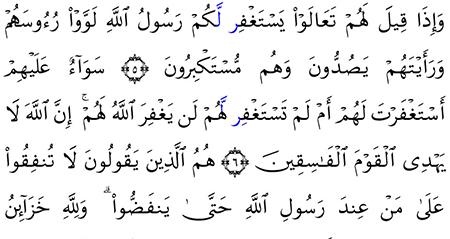 وَإِذَا قِيلَ لَهُمْ تَعَالَوْا۟ يَسْتَغْفِر لَّكُمْ رَسُولُ ٱللَّهِ لَوَّوْا۟ رُءُوسَهُمْ
وَرَأَيْتَهُمْ يَصُدُّونَ وَهُم مُّسْتَكْبِرُونَ ۝٥ سَوَآءٌ عَلَيْهِمْ
أَسْتَغْفَرْتَ لَهُمْ أَمْ لَمْ تَسْتَغْفِر لَّهُمْ لَن يَغْفِرَ ٱللَّهُ لَهُمْ ۚ إِنَّ ٱللَّهَ لَا
يَهْدِى ٱلْقَوْمَ ٱلْفَـٰسِقِينَ ۝٦ هُمُ ٱلَّذِينَ يَقُولُونَ لَا تُنفِقُوا۟
عَلَىٰ مَنْ عِندَ رَسُولِ ٱللَّهِ حَتَّىٰ يَنفَضُّوا۟ ۗ وَلِلَّهِ خَزَآئِنُ